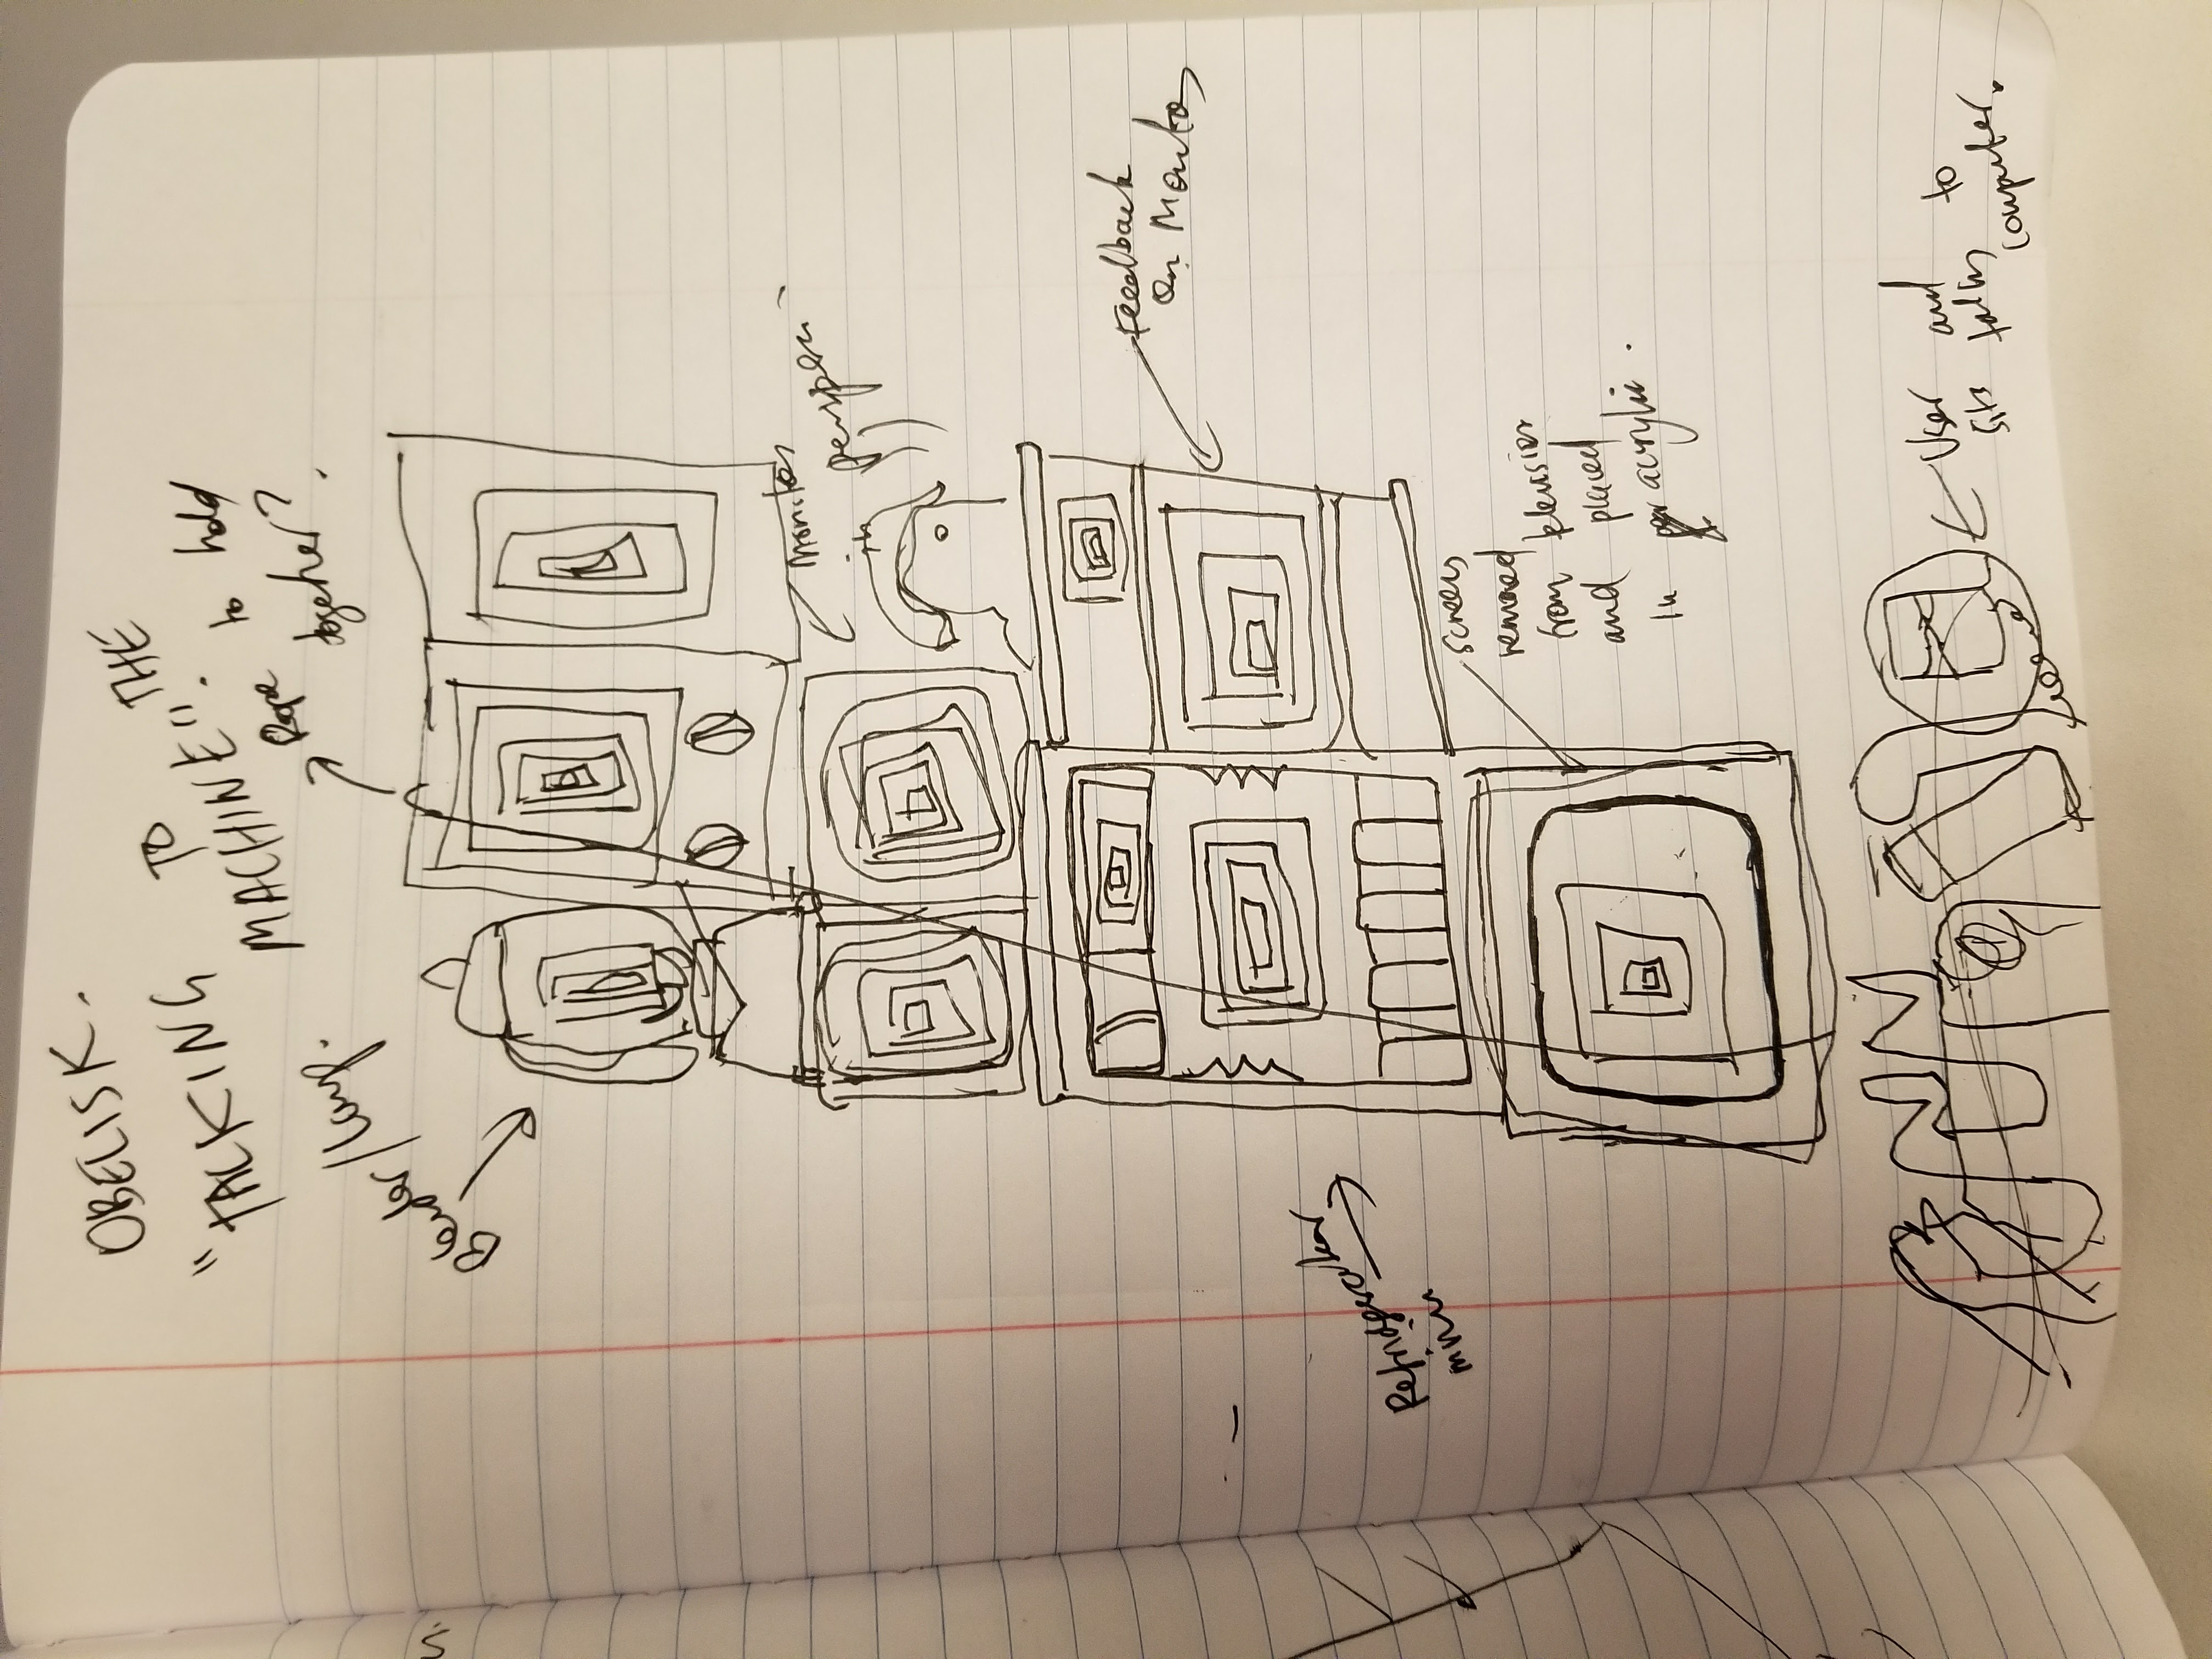 OBELISK.
"TALKING TO THE
MACHINE".
Rope to hold
together?
Blender/Lamp.
Monitors
in perspex
Feedback
on Monitos
Refridgerator
mini
screens
removed
from television
and placed
in acrylic.
User and
sits talks to
computer.